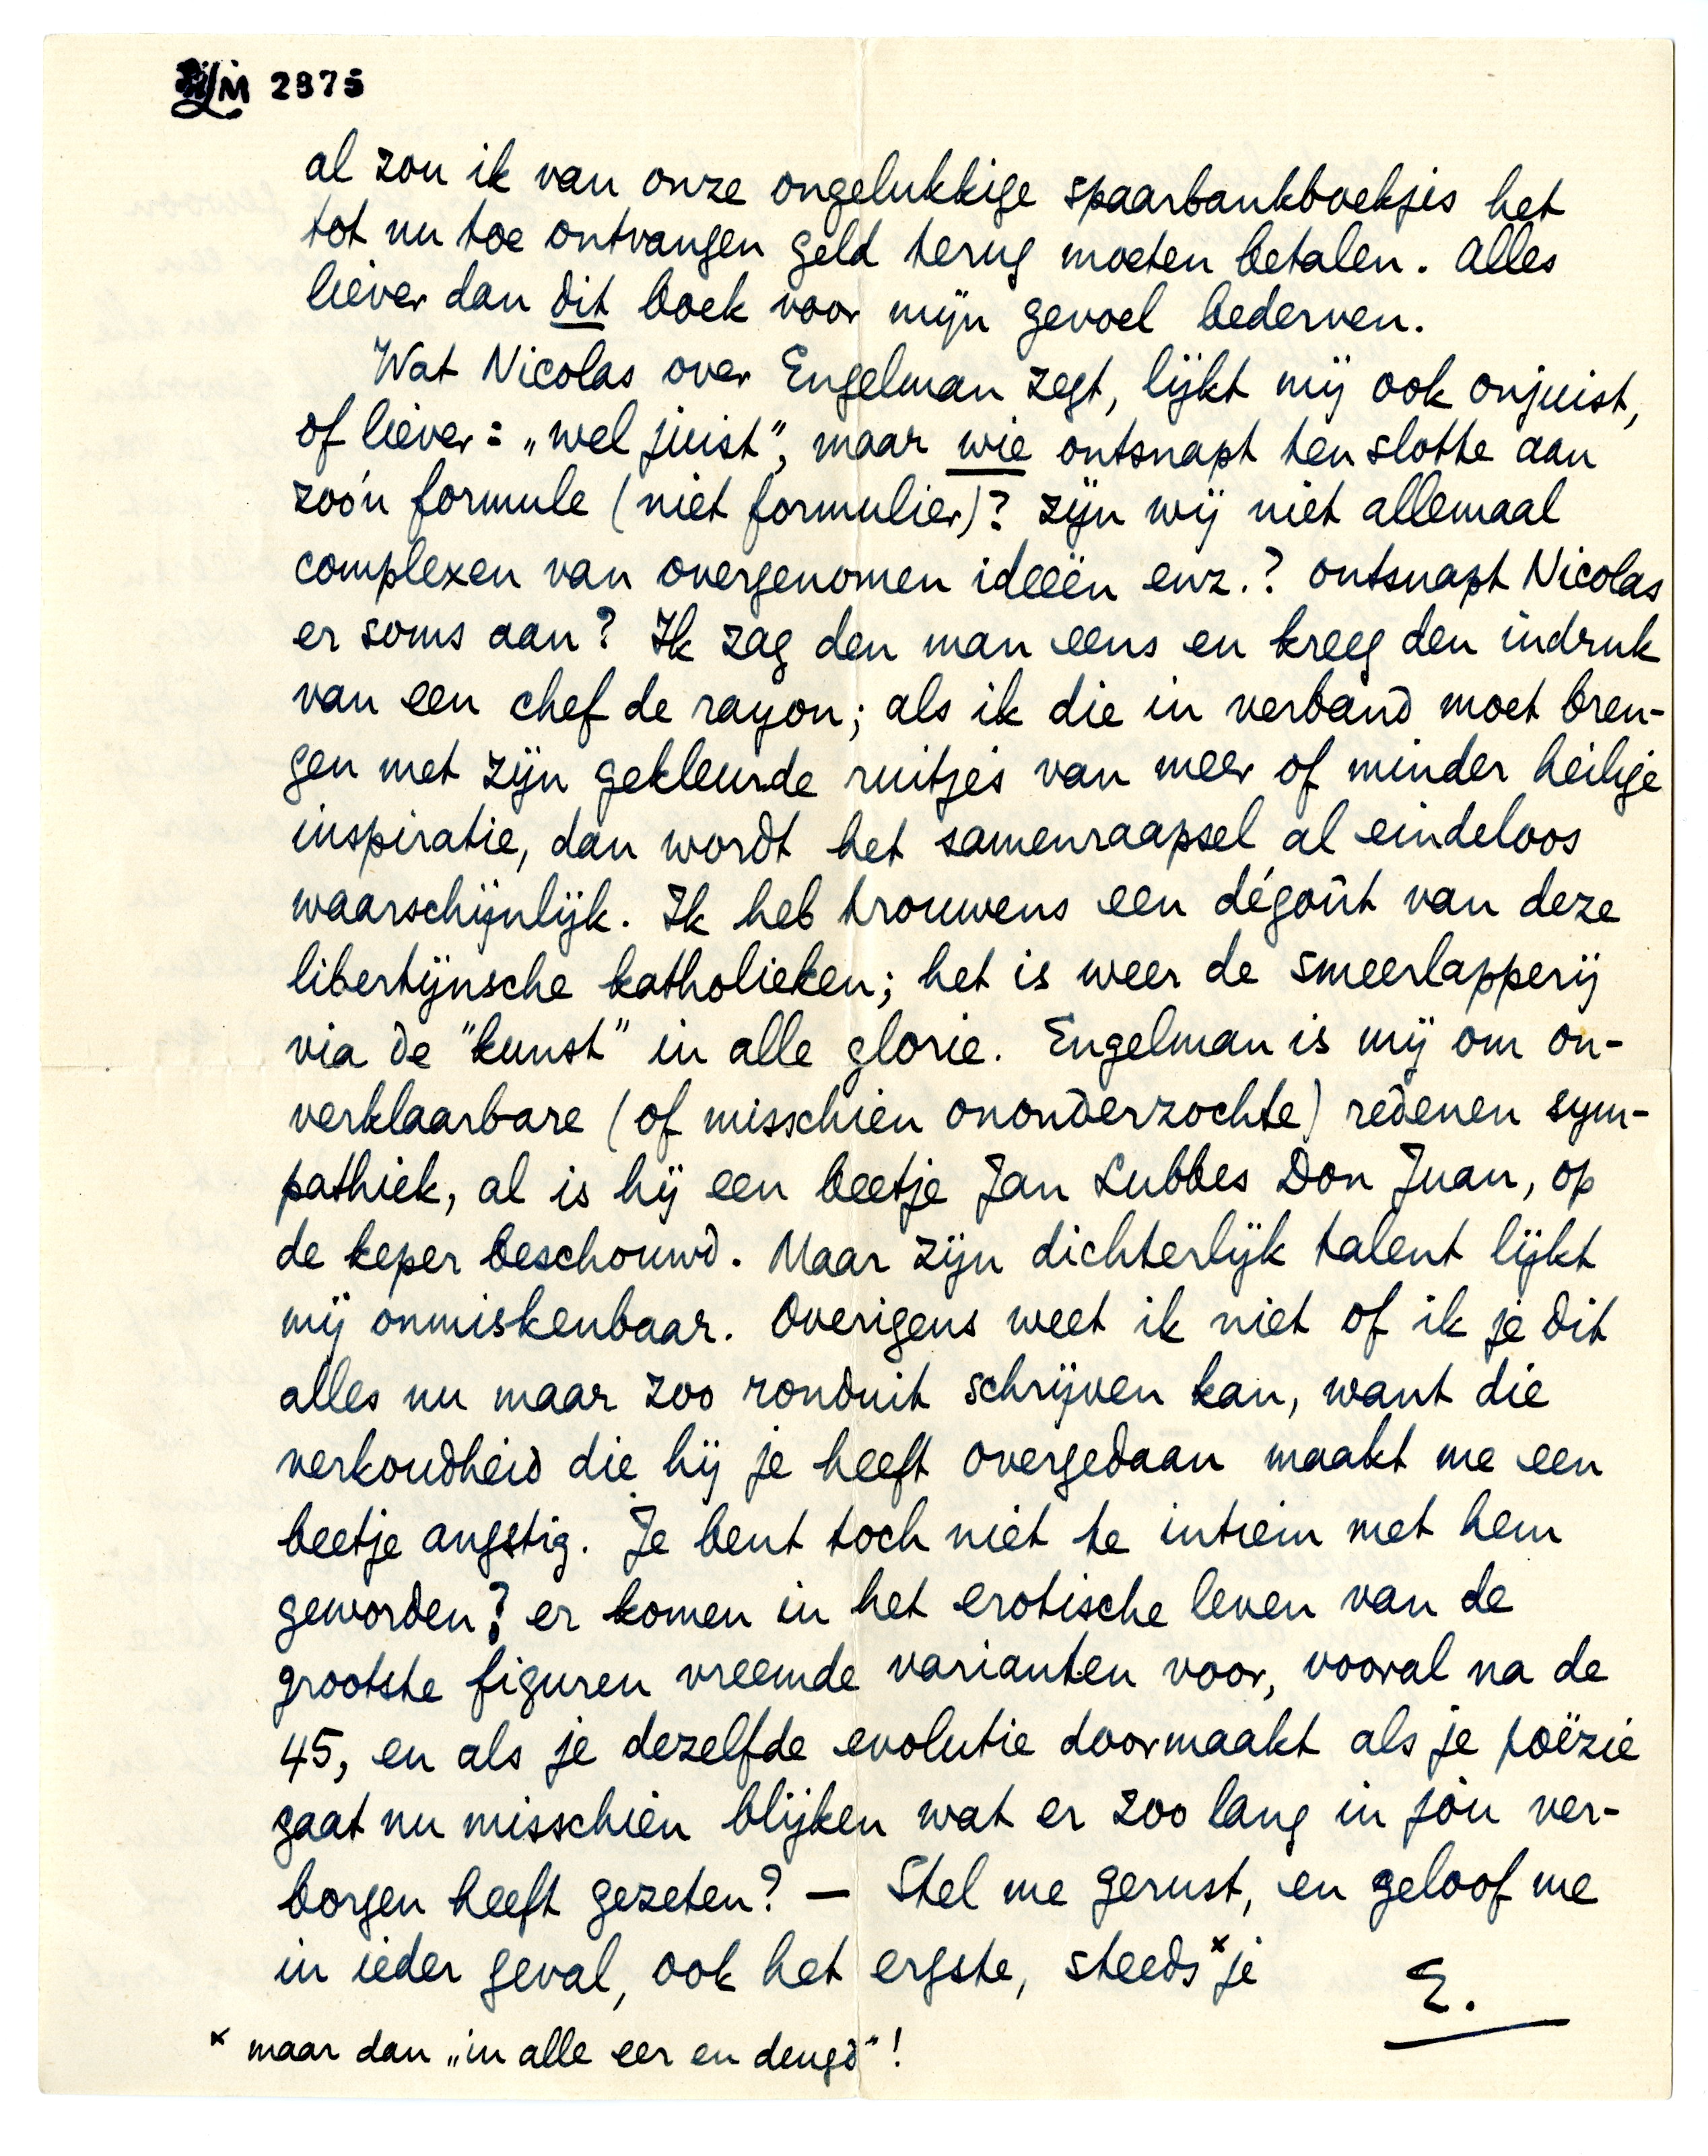 M 2875
al zou ik van onze ongelukkige spaarbankboekjes het
tot nu toe ontvangen geld terug moeten betalen. Alles
liever dan dit boek voor mijn gevoel bederven.
Wat Nicolas over Engelman zegt, lijkt mij ook onjuist,
of liever: „wel juist”, maar wie ontsnapt ten slotte aan
zoo'n formule (niet formulier)? zijn wij niet allemaal
complexen van overgenomen ideeën enz.? ontsnapt Nicolas
er soms aan? Ik zag den man eens en kreeg den indruk
van een chef de rayon; als ik die in verband moet bren-
gen met zijn gekleurde ruitjes van meer of minder heilige
inspiratie, dan wordt het samenraapsel al eindeloos
waarschijnlijk. Ik heb trouwens een dégoût van deze
libertijnsche katholieken; het is weer de smeerlapperij
via de "kunst" in alle glorie. Engelman is mij om on-
verklaarbare (of misschien ononderzochte) redenen sym-
pathiek, al is hij een beetje Jan Lubbes Don Juan, op
de keper beschouwd. Maar zijn dichterlijk talent lijkt
mij onmiskenbaar. Overigens weet ik niet of ik je dit
alles nu maar zoo ronduit schrijven kan, want die
verkoudheid die hij je heeft overgedaan maakt me een
beetje angstig. Je bent toch niet te intiem met hem
geworden? er komen in het erotische leven van de
grootste figuren vreemde varianten voor, vooral na de
45, en als je dezelfde evolutie doormaakt als je poëzie
gaat nu misschien blijken wat er zoo lang in jòu ver-
borgen heeft gezeten? — Stel me gerust, en geloof me
in ieder geval, ook het ergste, steeds x je
E.
x maar dan „in alle eer en deugd”!